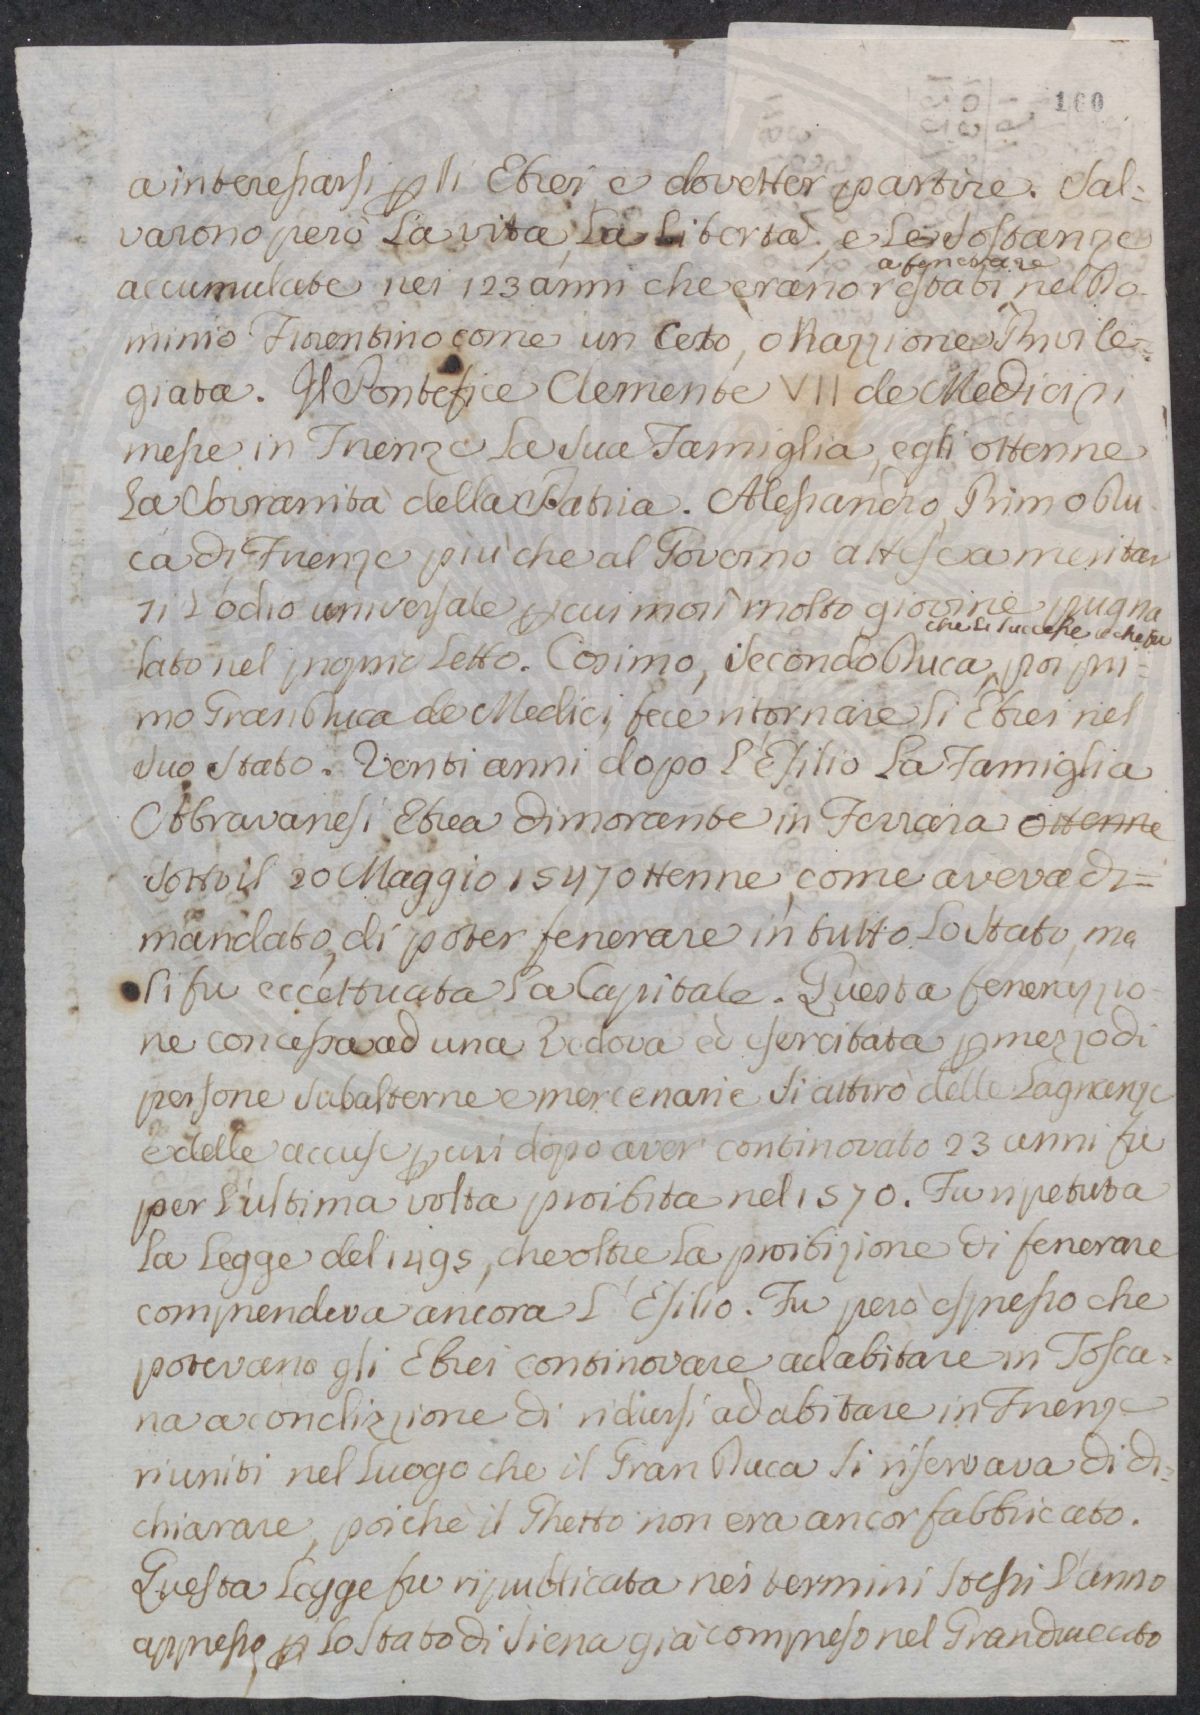 160
a interessarsi p gli Ebrei e dovetter partire. Sal=
varono però la vita, la Libertà, e le Sostanze
a fenerare
accumulate nei 123 anni che erano restati nel Do-
minio Fiorentino come un Ceto, o Nazzione Privile=
giata. Il Pontefice Clemente VII de Medici ri
messe in Firenze la sua Famiglia, egli ottenne
la Sovranità della Patria. Alessandro, Primo Du-
ca di Firenze più che al Governo attese a meritar
si l'odio universale p cui morì molto giovine pugna
che li successe e che fu
lato nel proprio Letto. Cosimo, Secondo Duca, poi pri=
mo Gran Duca de Medici, fece ritornare li Ebrei nel
suo Stato. Venti anni dopo l'Esilio la Famiglia
Abravanesi Ebrea dimorante in Ferrara ottenne
sotto il 20 Maggio 1547 ottenne, come aveva di=
mandato, di poter fenerare in tutto lo Stato, ma
li fu eccettuata la Capitale. Questa fenerazzio-
ne concessa ad una Vedova ed esercitata p mezzo di
persone subalterne e mercenarie si attirò delle Lagnanze
e delle accuse p cui dopo aver continovato 23 anni fu
per l'ultima volta proibita nel 1570. Fu ripetuta
la Legge del 1495, che oltre la proibizione di fenerare
comprendeva ancora l'Esilio. Fu però espresso che
potevano gli Ebrei continovare ad abitare in Tosca=
na a condizzione di ridursi ad abitare in Firenze
riuniti nel Luogo che il Gran Duca si riservava di di=
chiarare, poiche il Ghetto non era ancor fabbricato.
Questa Legge fu ripubblicata nei termini stessi l'anno
appresso p lo Stato di Siena già compreso nel Granducato